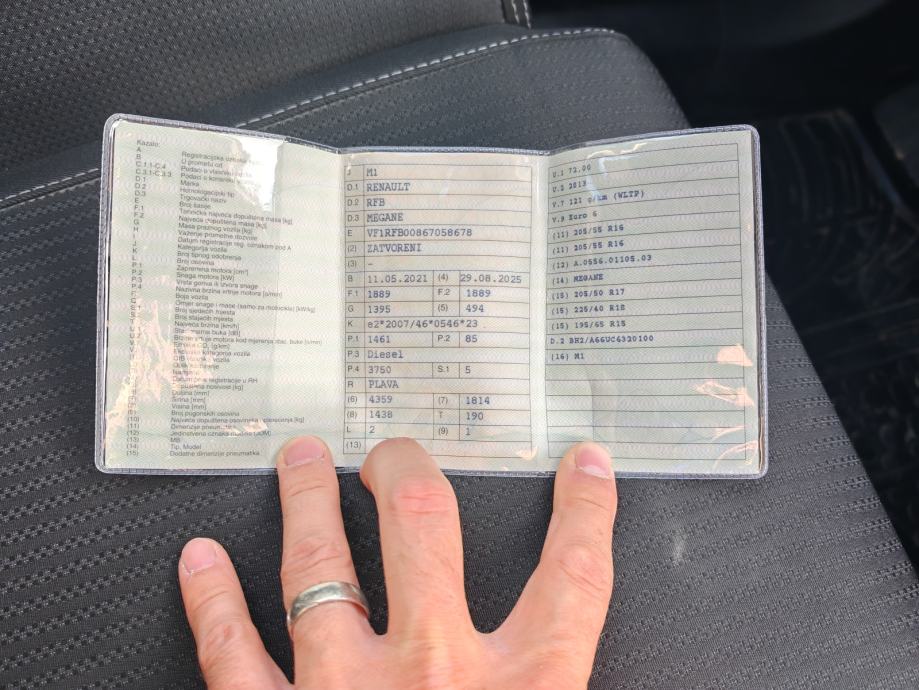 Kazalo:
A Registracijska oznaka
B U prometu od
C.1.1-C.4 Podaci o vlasniku
C.3.1-C.3.3 Podaci o korisniku
D.1 Marka
D.2 Homologacijski tip
D.3 Trgovački naziv
E Broj šasije
F.1 Tehnička najveća dopuštena masa [kg]
F.2 Najveća dopuštena masa [kg]
G Masa praznog vozila [kg]
H Važenje prometne dozvole
I Datum registracije reg. oznakom pod A
J Kategorija vozila
K Broj tipnog odobrenja
L Broj osovina
P.1 Zapremina motora [cm³]
P.2 Snaga motora [kW]
P.3 Vrsta goriva ili izvora snage
P.4 Nazivna brzina vrtnje motora [o/min]
Boja vozila
Omjer snage i mase (samo za motocikle) [kW/kg]
Broj sjedećih mjesta
Broj stajaćih mjesta
Najveća brzina [km/h]
Datum prve registracije u RH
nosivost [kg]
Duljina [mm]
Širina [mm]
Visina [mm]
Broj pogonskih osovina
(10) Najveća dopuštena osovinska [kg]
(11) Dimenzije
(12) Jedinstvena oznaka
(13) MB
(14) Tip, Model
(15) Dodatne dimenzije pneumatika
J M1
D.1 RENAULT
D.2 RFB
D.3 MEGANE
E VF1RFB00867058678
(2) ZATVORENI
(3) –
B 11.05.2021 (4) 29.08.2025
F.1 1889 F.2 1889
G 1395 (5) 494
K e2*2007/46*0546*23
P.1 1461 P.2 85
P.3 Diesel
P.4 3750 S.1 5
R PLAVA
(6) 4359 (7) 1814
(8) 1438 T 190
L 2 (9) 1
(13)
U.1 72.00
U.2 2813
V.7 121 g/km (WLTP)
V.9 Euro 6
(11) 205/55 R16
(11) 205/55 R16
(12) A.0556.01105.03
(14) MEGANE
(15) 205/50 R17
(15) 225/40 R18
(15) 195/65 R15
D.2 BH2/A66UC6320100
(16) M1